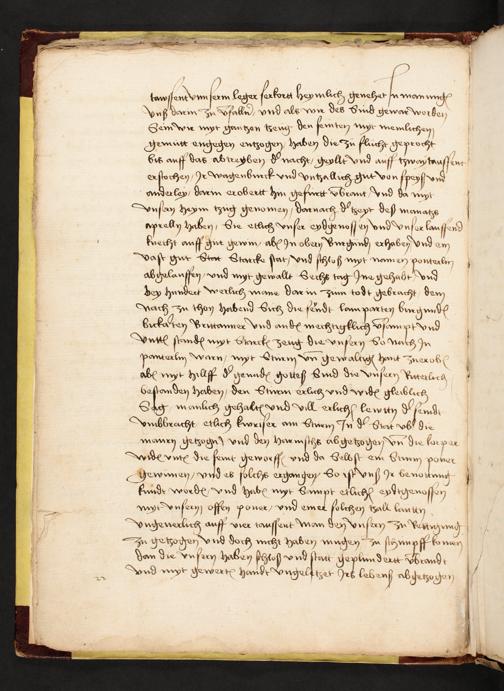 tawssent vnnserm leger ferkortt heymlich genehet In manung
vnß darin zu vberfalln und als wir des Sind gewar worden
Sein wir myt gantzen tzeug den feinten myt menlichem
gemiett engegen entzogen haben die zu flucht geprocht
bis auff das abtreyben der nacht geyllt und auff tzway taussent
erstochen / Ir wagenburck und vntzallich gut von speyß und
anderley darin erobertt hin gefurtt verbrant und da myt
vnsern heym tzug genomen / darnach der tzeyt des monats
aprelln haben / Sie etlich vnser eydgenossen und vnser lauffend
knecht auff gut gewin / aber In oberen Burgund erhaben und ein
vast gut Starcke stat und schloß myt namen ponterlin
abgelauffen / und myt gewalt Sechs tag Ine gehabt und
bey hundert werlich mane darin zum todt gebracht dem
nach zu thon habend Sich die feindt lamparten burgunder
bickarten Brittanner und ander mechtigklich versampt und
vnter standen myt Starcken zeug die vnsern So noch In
ponterlin warn / myt Sturm vnd gewaltiger hant zuerobern
aber myt hillff der genaden gottes Sind die vnsern Ritterlich
bestanden haben / den Sturm erlich und wider gleiblich
Sag manlich gehalten und vill erlicher lewtten der feindt
vmbbracht etlich kwriser am Sturm In der Stat vber die
maurn getzogen und den Harnischs abgetzogen vnd die korper
wider vnter die feint geworffen und da Selbst ein Sturm paner
gewunnen / und es solchs ergangen / So ist vnß Ir benottung
kundt worden / und haben myt Sampt etlichen eydtgenossen
myt vnsern offen paner / und einer solchen tzall lautten
vngeuerlich auff vier taussent man den vnsern zu Rettigung
zu getzogen und doch nicht haben mugen zu schimpff komen
dan die vnsern haben schloß und statt geplundertt verbrandt
und myt gewerter handt vngeletzet Irs lebens abgetzogen